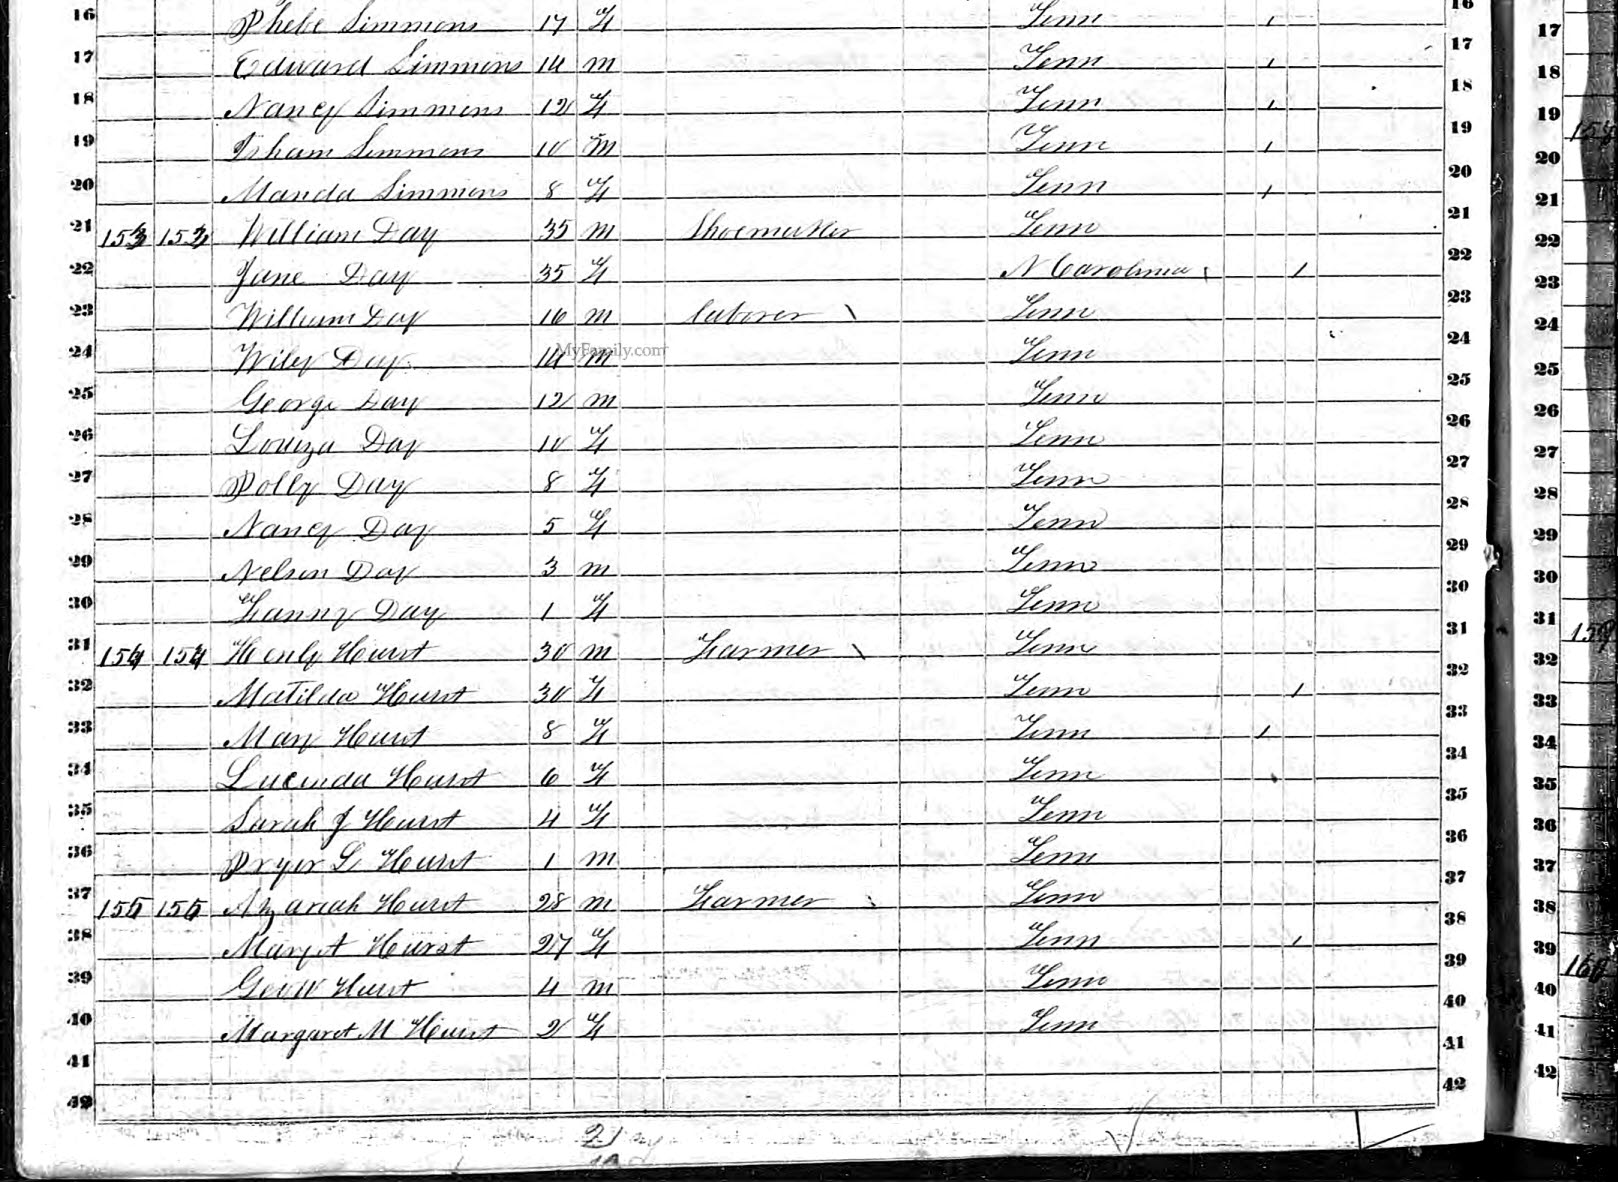 16 Phebe Simmons 17 F Tenn 1 16
17 Edward Simmons 14 m Tenn 1 17
18 Nancy Simmons 12 F Tenn 1 18
19 Isham Simmons 10 m Tenn 1 19
20 Manda Simmons 8 F Tenn 1 20
21 153 153 William Day 35 m Shoemaker Tenn 21
22 Jane Day 35 F N Carolina 1 22
23 William Day 16 m laborer Tenn 23
24 Wiley Day 14 m Tenn 24
MyFamily.com
25 George Day 12 m Tenn 25
26 Louiza Day 10 F Tenn 26
27 Polly Day 8 F Tenn 27
28 Nancy Day 5 F Tenn 28
29 Nelson Day 3 m Tenn 29
30 Fanny Day 1 F Tenn 30
31 154 154 Henly Hurst 30 m Farmer Tenn 31
32 Matilda Hurst 30 F Tenn 1 32
33 Mary Hurst 8 F Tenn 1 33
34 Lucinda Hurst 6 F Tenn 34
35 Sarah J Hurst 4 F Tenn 35
36 Pryor L Hurst 1 m Tenn 36
37 155 155 Azariah Hurst 28 m Farmer Tenn 37
38 Margt Hurst 27 F Tenn 1 38
39 Geo W Hurst 4 m Tenn 39
40 Margaret M Hurst 2 F Tenn 40
41 41
42 42
21
17
18
19
20
21
22
23
24
25
26
27
28
29
30
31
32
33
34
35
36
37
38
39
40
41
42